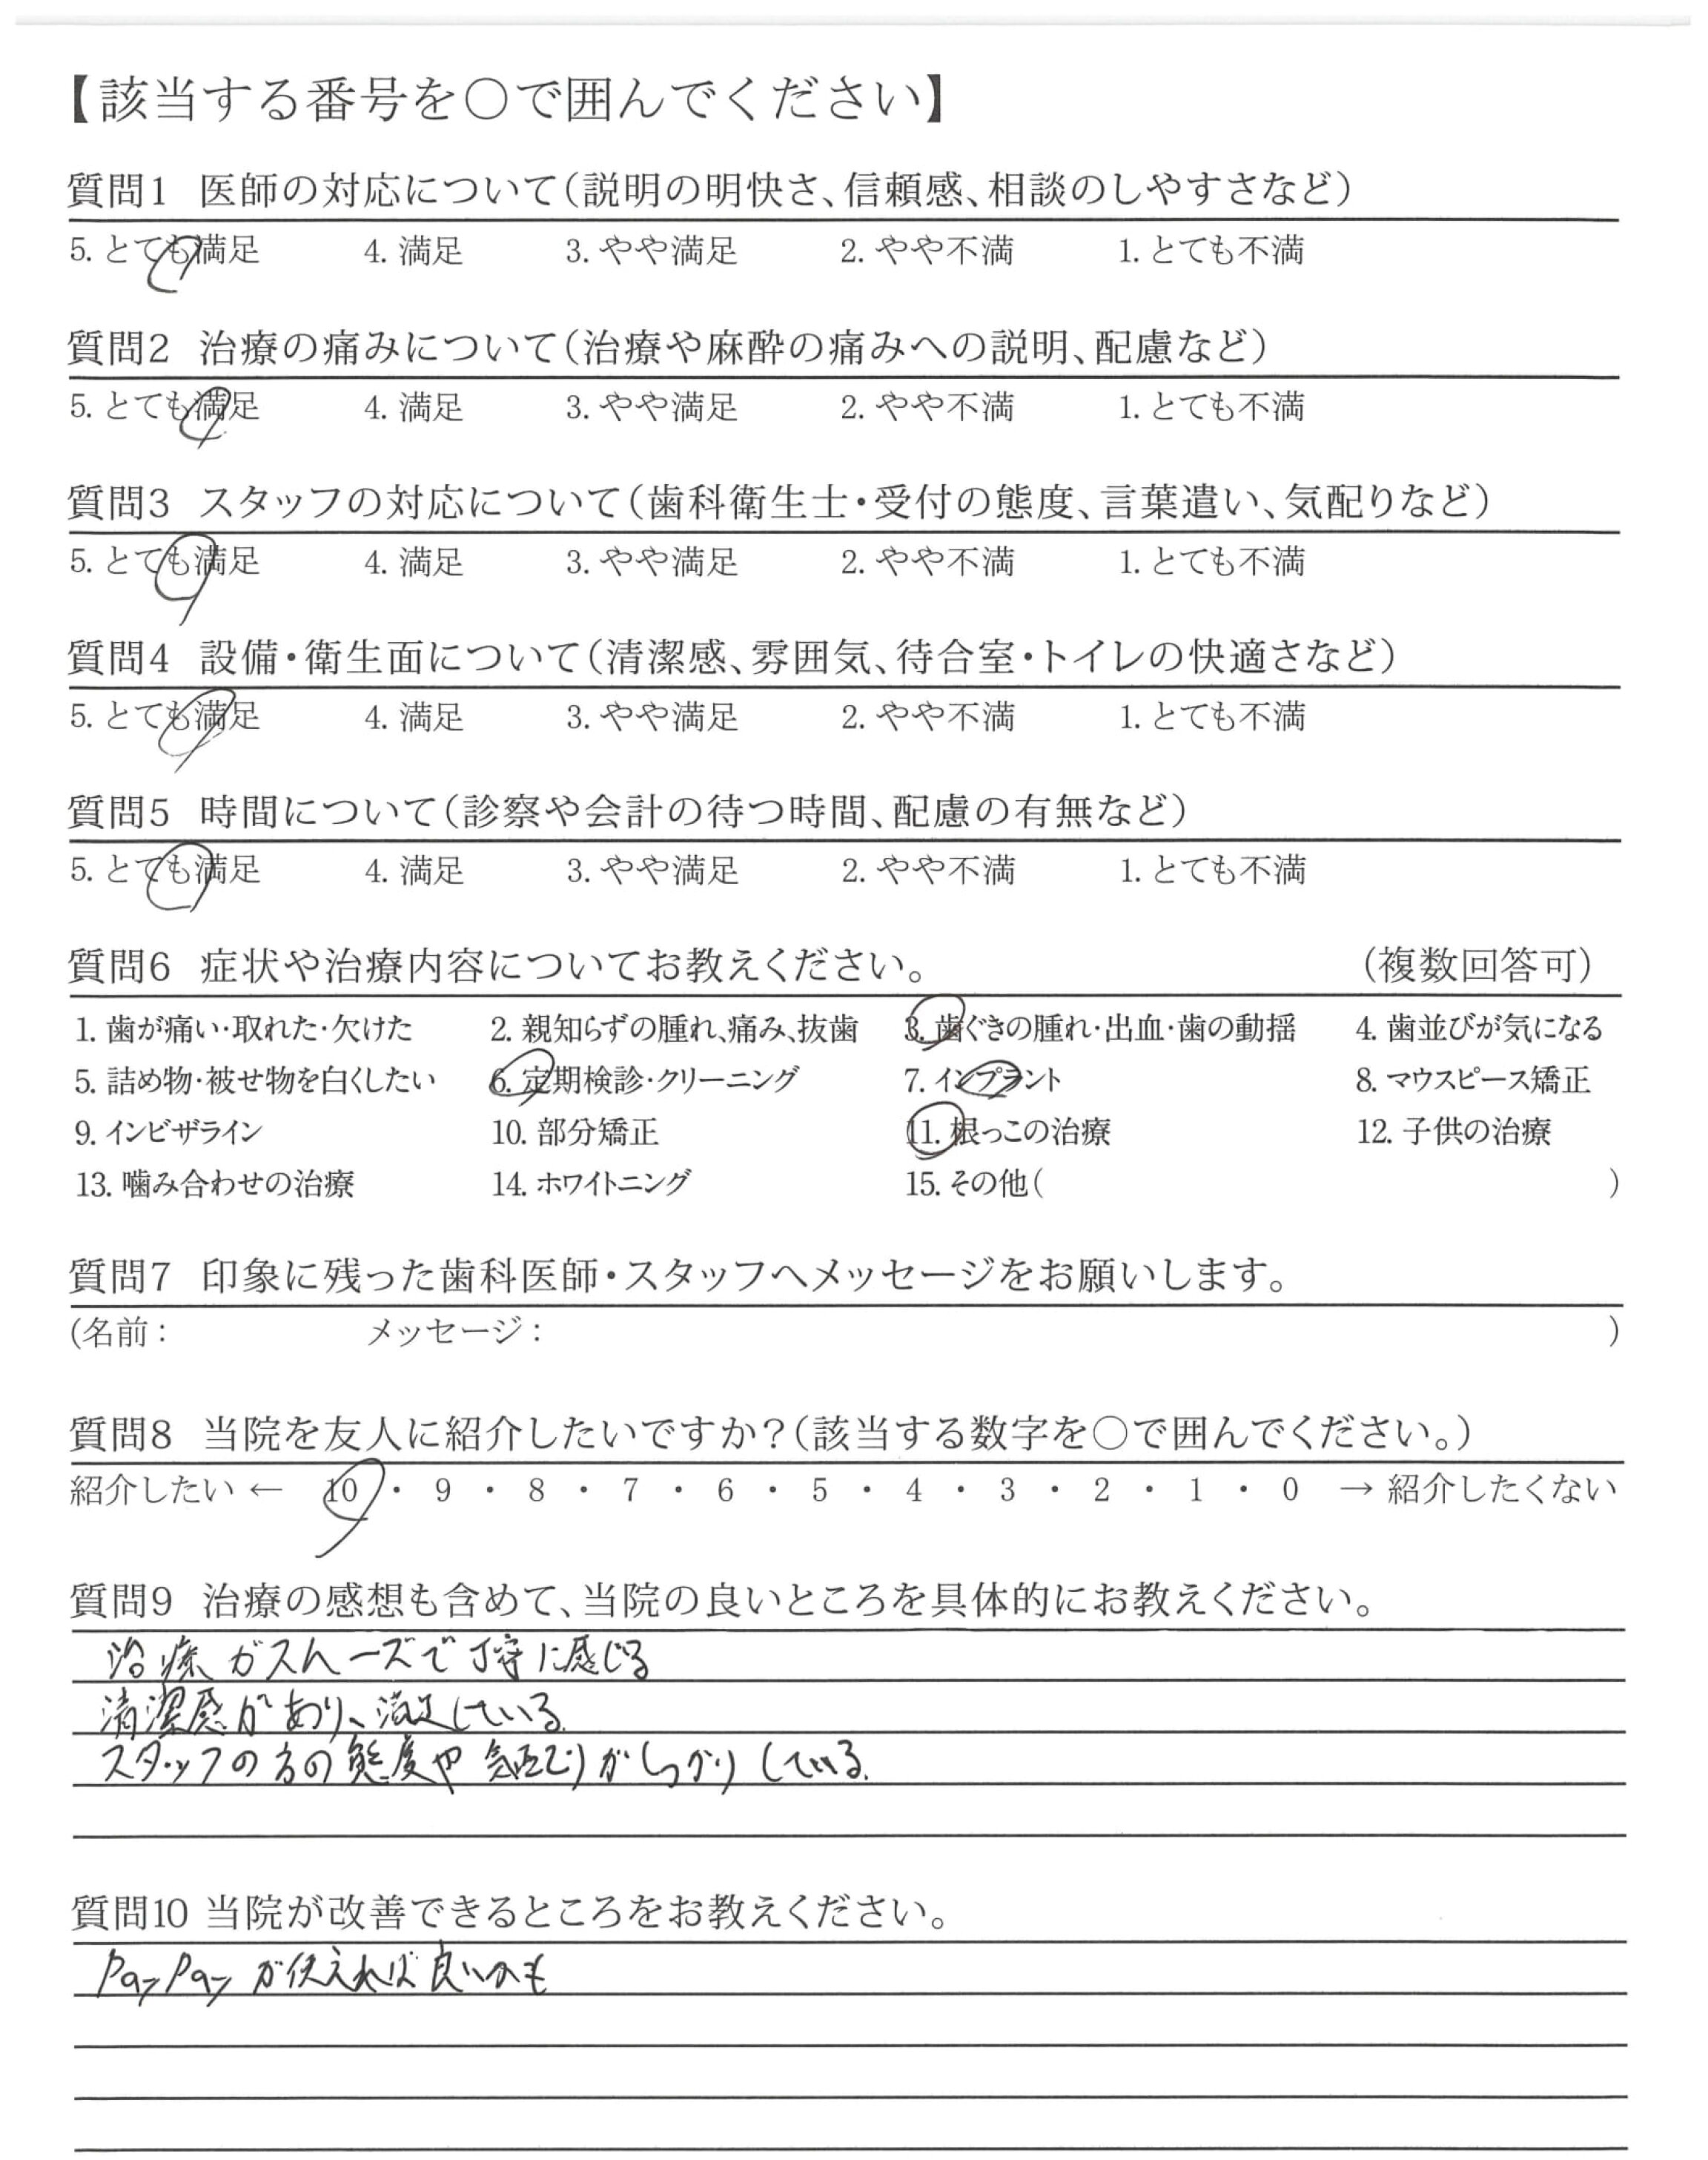 【該当する番号を〇で囲んでください】
質問1 医師の対応について(説明の明快さ、信頼感、相談のしやすさなど)
5. とても満足 4. 満足 3. やや満足 2. やや不満 1. とても不満
質問2 治療の痛みについて(治療や麻酔の痛みへの説明、配慮など)
5. とても満足 4. 満足 3. やや満足 2. やや不満 1. とても不満
質問3 スタッフの対応について(歯科衛生士・受付の態度、言葉遣い、気配りなど)
5. とても満足 4. 満足 3. やや満足 2. やや不満 1. とても不満
質問4 設備・衛生面について(清潔感、雰囲気、待合室・トイレの快適さなど)
5. とても満足 4. 満足 3. やや満足 2. やや不満 1. とても不満
質問5 時間について(診察や会計の待つ時間、配慮の有無など)
5. とても満足 4. 満足 3. やや満足 2. やや不満 1. とても不満
質問6 症状や治療内容についてお教えください。 (複数回答可)
1. 歯が痛い・取れた・欠けた 2. 親知らずの腫れ、痛み、抜歯 3. 歯ぐきの腫れ・出血・歯の動揺 4. 歯並びが気になる
5. 詰め物・被せ物を白くしたい 6. 定期検診・クリーニング 7. インプラント 8. マウスピース矯正
9. インビザライン 10. 部分矯正 11. 根っこの治療 12. 子供の治療
13. 噛み合わせの治療 14. ホワイトニング 15. その他( )
質問7 印象に残った歯科医師・スタッフへメッセージをお願いします。
(名前: メッセージ: )
質問8 当院を友人に紹介したいですか?(該当する数字を〇で囲んでください。)
紹介したい ← 10 ・ 9 ・ 8 ・ 7 ・ 6 ・ 5 ・ 4 ・ 3 ・ 2 ・ 1 ・ 0 → 紹介したくない
質問9 治療の感想も含めて、当院の良いところを具体的にお教えください。
治療がスムーズで丁寧に感じる
清潔感があり、満足している。
スタッフの方の態度や気配りがしっかりしている。
質問10 当院が改善できるところをお教えください。
PayPayが使えれば良いかも